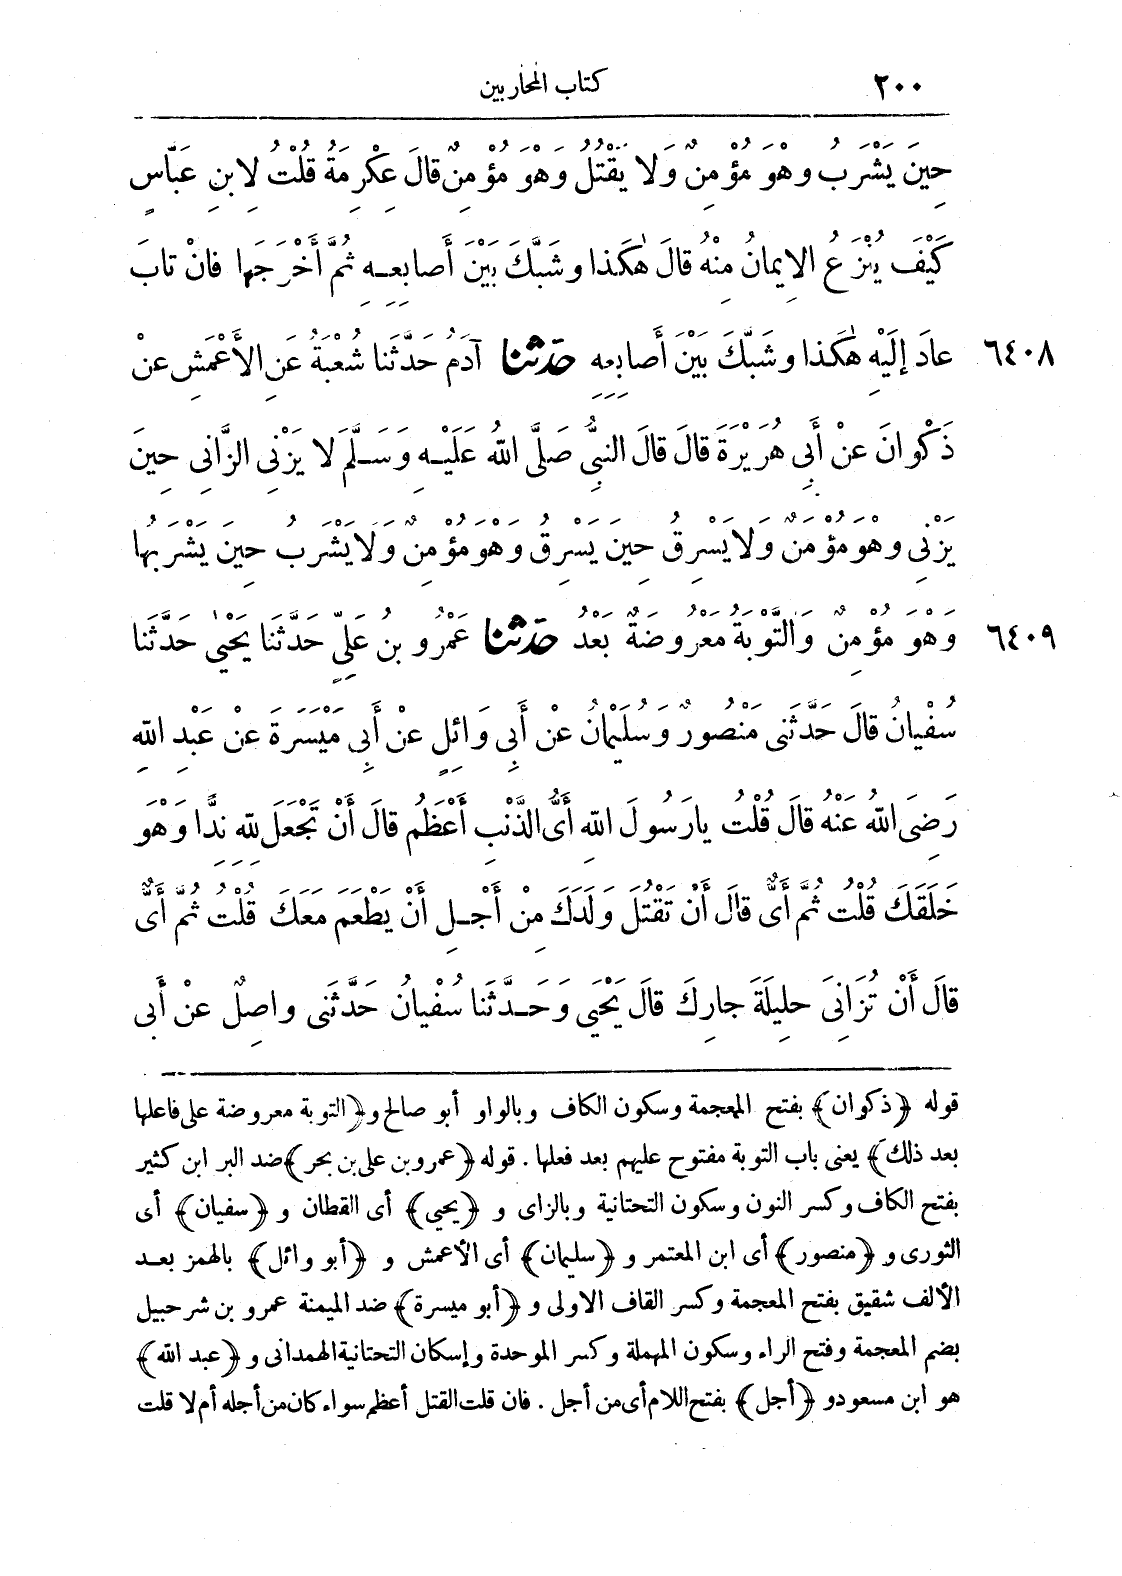 ٢٠٠ كتاب المحاربين
حِينَ يَشْرَبُ وَهْوَ مُؤْمِنٌ وَلَا يَقْتُلُ وَهْوَ مُؤْمِنٌ قَالَ عِكْرِمَةُ قُلْتُ لِابْنِ عَبَّاسٍ
كَيْفَ يُنْزَعُ الإِيمَانُ مِنْهُ قَالَ هٰكَذَا وَشَبَّكَ بَيْنَ أَصَابِعِهِ ثُمَّ أَخْرَجَهَا فَانْ تَابَ
٦٤٠٨ عَادَ إِلَيْهِ هٰكَذَا وَشَبَّكَ بَيْنَ أَصَابِعِهِ حَدَّثَنَا آدَمُ حَدَّثَنَا شُعْبَةُ عَنِ الأَعْمَشِ عَنْ
ذَكْوَانَ عَنْ أَبِى هُرَيْرَةَ قَالَ قَالَ النَّبِىُّ صَلَّى اللهُ عَلَيْهِ وَسَلَّمَ لَا يَزْنِى الزَّانِى حِينَ
يَزْنِى وَهْوَ مُؤْمِنٌ وَلَا يَسْرِقُ حِينَ يَسْرِقُ وَهْوَ مُؤْمِنٌ وَلَا يَشْرَبُ حِينَ يَشْرَبُهَا
وَهْوَ مُؤْمِنٌ وَالتَّوْبَةُ مَعْرُوضَةٌ بَعْدُ حَدَّثَنَا عَمْرُو بنُ عَلِيٍّ حَدَّثَنَا يَحْيٰى حَدَّثَنَا ٦٤٠٩
سُفْيَانُ قَالَ حَدَّثَنِى مَنْصُورٌ وَسُلَيْمَانُ عَنْ أَبِى وَائِلٍ عَنْ أَبِى مَيْسَرَةَ عَنْ عَبْدِ اللهِ
رَضِىَ اللهُ عَنْهُ قَالَ قُلْتُ يَا رَسُولَ اللهِ أَىُّ الذَّنْبِ أَعْظَمُ قَالَ أَنْ تَجْعَلَ لِلّٰهِ نِدًّا وَهْوَ
خَلَقَكَ قُلْتُ ثُمَّ أَىٌّ قَالَ أَنْ تَقْتُلَ وَلَدَكَ مِنْ أَجْلِ أَنْ يَطْعَمَ مَعَكَ قُلْتُ ثُمَّ أَىٌّ
قَالَ أَنْ تُزَانِىَ حَلِيلَةَ جَارِكَ قَالَ يَحْيَى وَحَدَّثَنَا سُفْيَانُ حَدَّثَنِى وَاصِلٌ عَنْ أَبِى
قوله ﴿ذكوان﴾ بفتح المعجمة وسكون الكاف وبالواو أبو صالح و﴿التوبة معروضة على فاعلها
بعد ذلك﴾ يعنى باب التوبة مفتوح عليهم بعد فعلها . قوله ﴿عمرو بن على بن بحر﴾ ضد البر ابن كثير
بفتح الكاف وكسر النون وسكون التحتانية وبالزاى و ﴿يحيى﴾ أى القطان و ﴿سفيان﴾ أى
الثورى و ﴿منصور﴾ أى ابن المعتمر و ﴿سليمان﴾ أى الأعمش و ﴿أبو وائل﴾ بالهمز بعد
الألف شقيق بفتح المعجمة وكسر القاف الاولى و ﴿أبو ميسرة﴾ ضد الميمنة عمرو بن شرحبيل
بضم المعجمة وفتح الراء وسكون المهملة وكسر الموحدة وإسكان التحتانية الهمدانى و ﴿عبد الله﴾
هو ابن مسعود و ﴿أجل﴾ بفتح اللام أى من أجل . فان قلت القتل أعظم سواء كان من أجله أم لا قلت